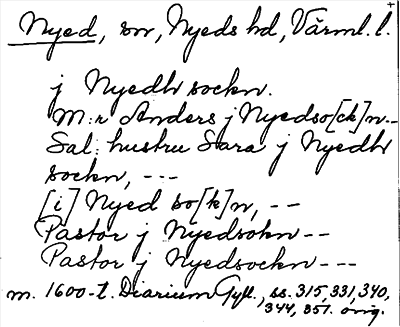 Nyed, sn, Nyeds hd, Värml. l.
j Nyedh sockn.
M:r Anders j Nyedso[ck]n--
Sal: hustru Sara j Nyedh
sockn, ---
[i] Nyed so[k]n, --
Pastor j Nyedsokn --
Pastor j Nyedsockn ---
m. 1600-t. Diarium Gyll., ss. 315, 331, 340,
344, 351. orig.